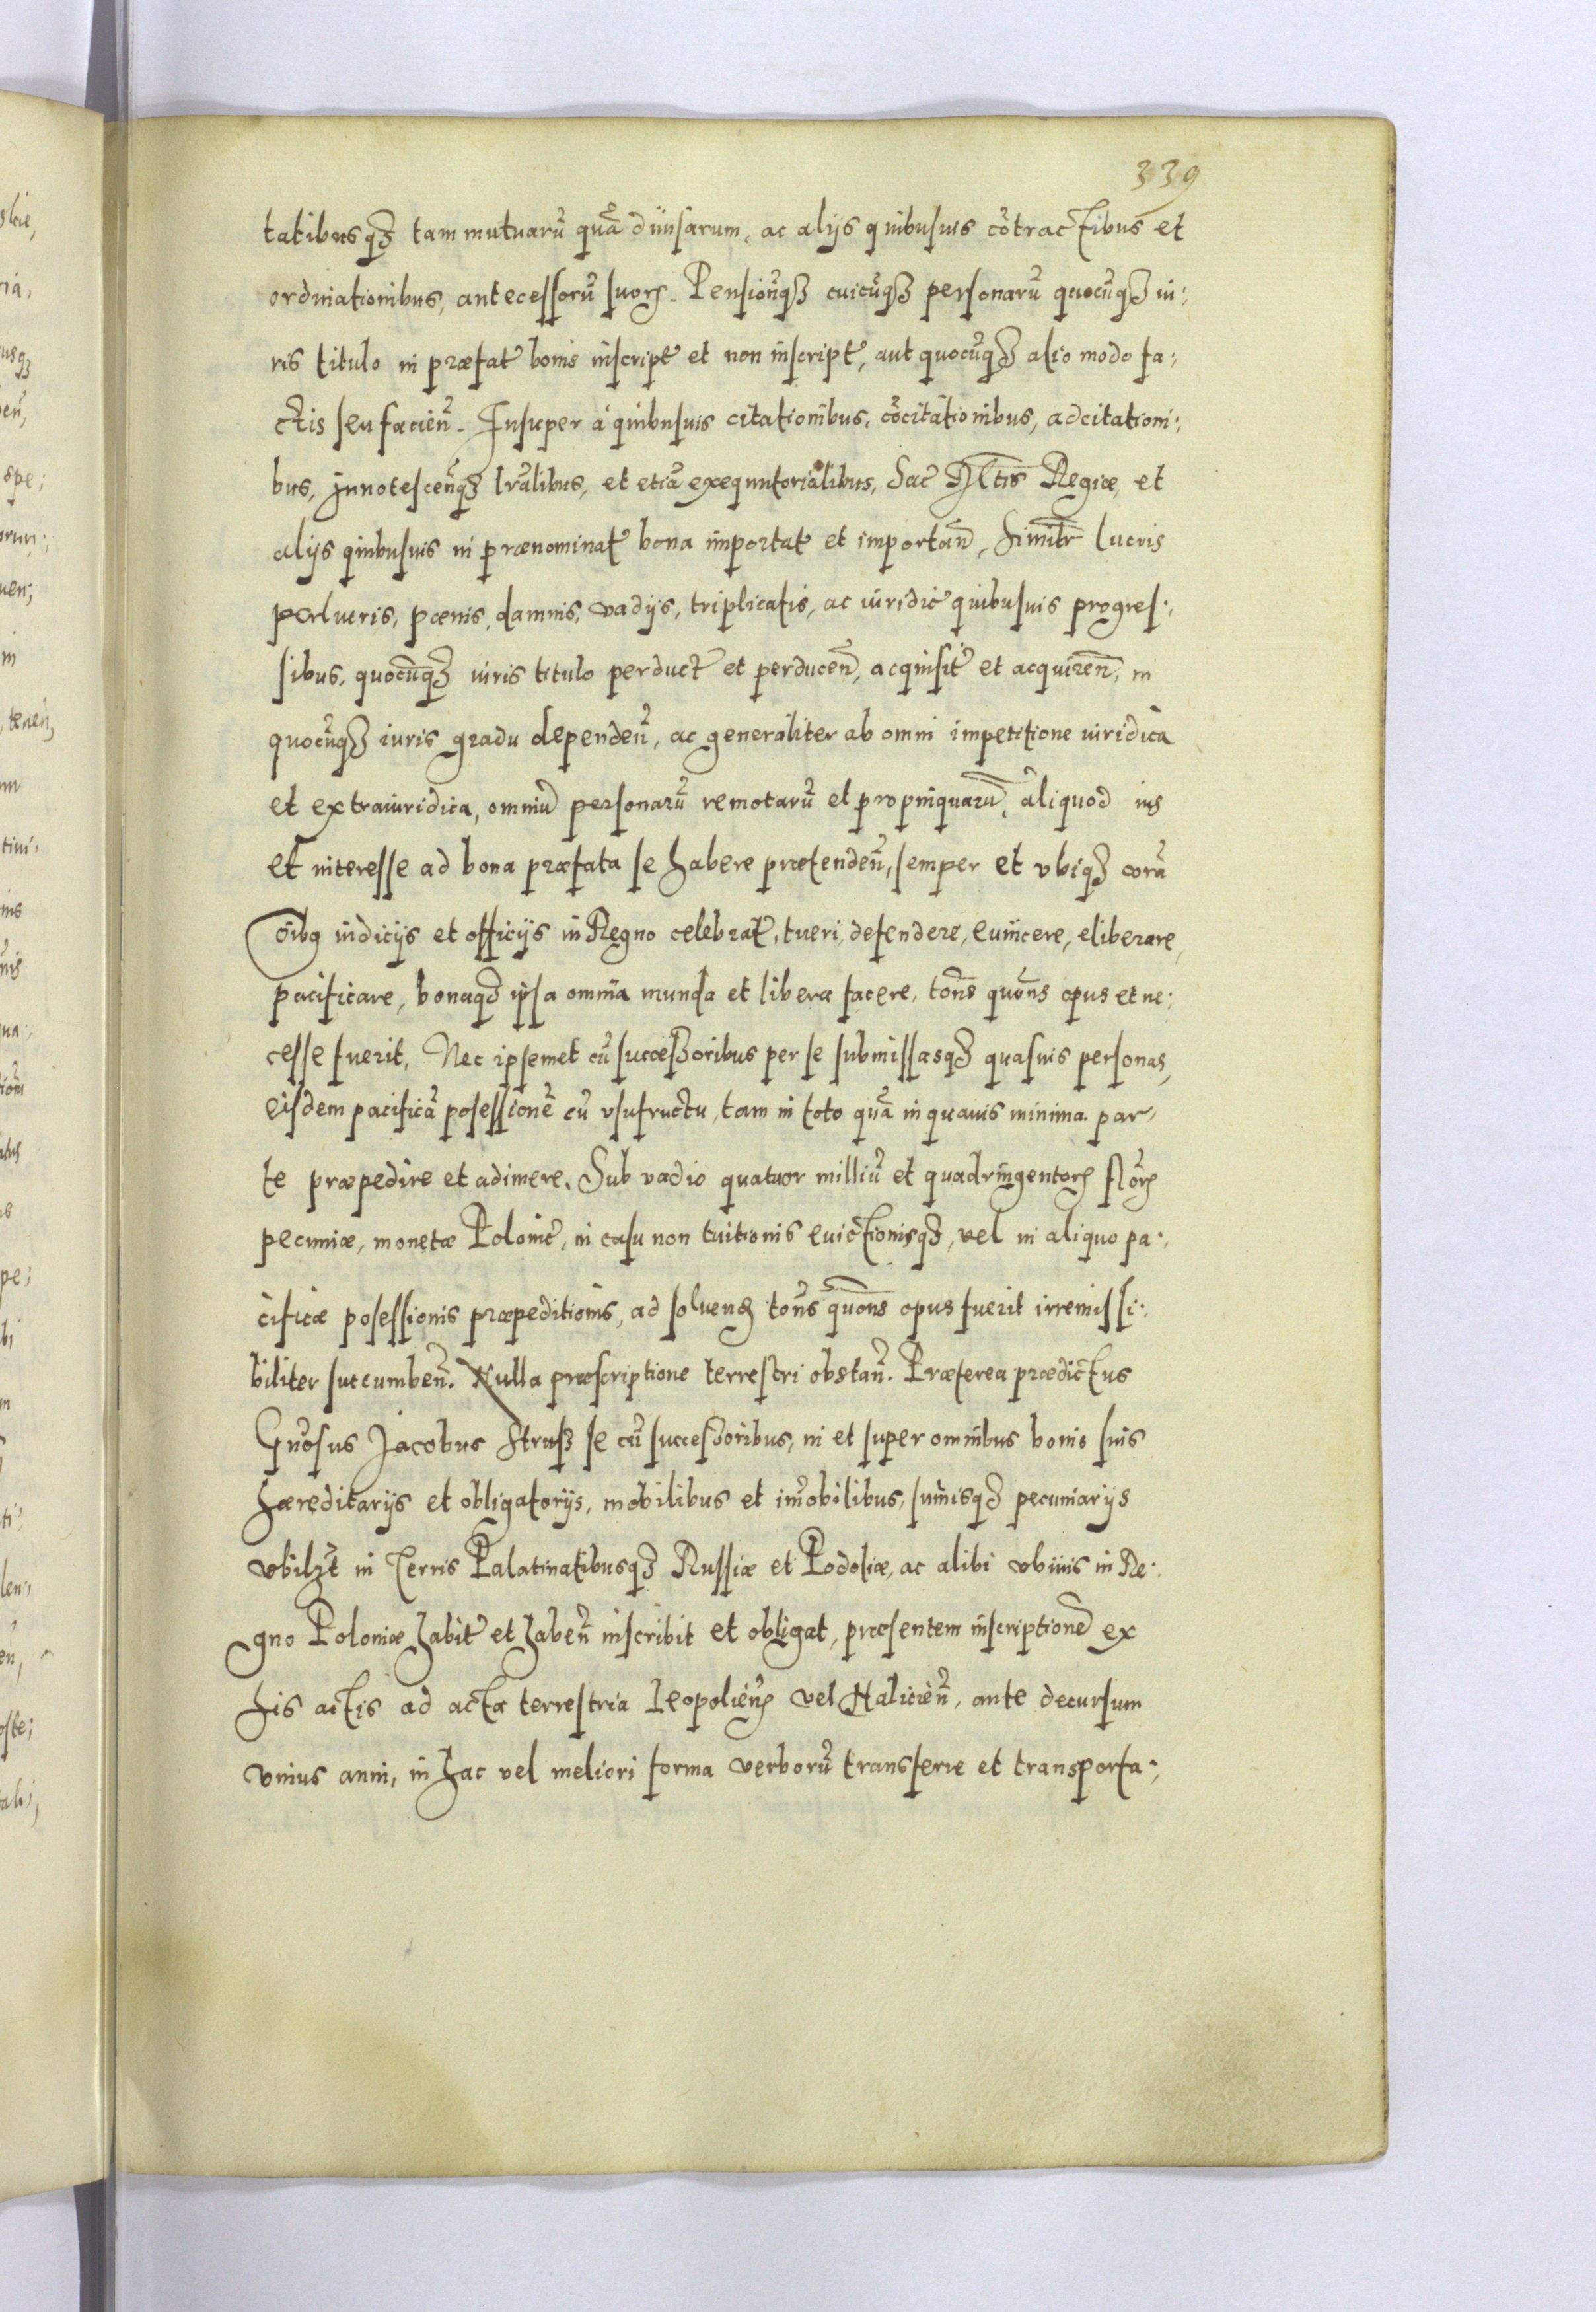 339
tatibusq₃ tam mutuarū quā diuisarum, ac alijs quibusuis cōtractibus et
ordinationibus, antecessorū suoꝝ. Pensionūq₃ cuicūq₃ personarū quocūq₃ iu:
ris titulo in præfat̃ bonis inscript̃ et non inscript̃, aut quocūq₃ alio modo fa:
ctis seu facien̄. Insuper à quibusuis citationibus, cōcitationibus, adcitationi:
bus, Innotescen̄q₃ lrālibus, et etiā exequutorialibus, Sac̃ Mtis Regiæ, et
alijs quibusuis in prænominat̃ bona importat̃ et importan̄, Simitr̃ lucris
perlucris, pœnis, damnis, vadijs, triplicatis, ac iuridic̃ quibusuis progres:
sibus, quocūq₃ iuris titulo perduct̃ et perducen̄, acquisit̃ et acquiren̄, in
quocūq₃ iuris gradu dependen̄, ac generaliter ab omni impetitione iuridica
et extraiuridica, omniū personarū remotarū et propinquarū, aliquod ius
et interesse ad bona præfata se habere prætenden̄, semper et vbiq₃ corā
oībq iudicijs et officijs in Regno celebrat̃, tueri, defendere, euincere, eliberare,
pacificare, bonaq₃ ipsa omnia munda et libera facere, tōns quōns opus et ne:
cesse fuerit, Nec ipsemet cū successoribus per se submissasq₃ quasuis personas,
eisdem pacificā posessionē cū vsufructu, tam in toto quā in quauis minima par,
te præpedire et adimere. Sub vadio quatuor milliū et quadringentoꝝ flōrꝝ
pecuniæ, monetæ Polonic̃, in casu non tuitionis euictionisq₃, vel in aliquo pa:
cificæ posessionis præpeditionis, ad soluenꝗ tōns quōns opus fuerit irremissi:
biliter succumben̄. Nulla præscriptione terrestri obstan̄. Præterea prædictus
Gnōsus Jacobus Strusz se cū successoribus, in et super omnibus bonis suis
hæreditarijs et obligatorijs, mobilibus et im̄obilibus, sum̄isq₃ pecuniarijs
vbilȝt in Terris Palatinatibusq₃ Russiæ et Podoliæ, ac alibi vbiuis in Re:
gno Poloniæ habit̃ et haben̄ inscribit et obligat, præsentem inscriptionē ex
his actis ad acta terrestria leopolien̄ vel Halicien̄, ante decursum
vnius anni, in hac vel meliori forma verborū transferre et transporta: